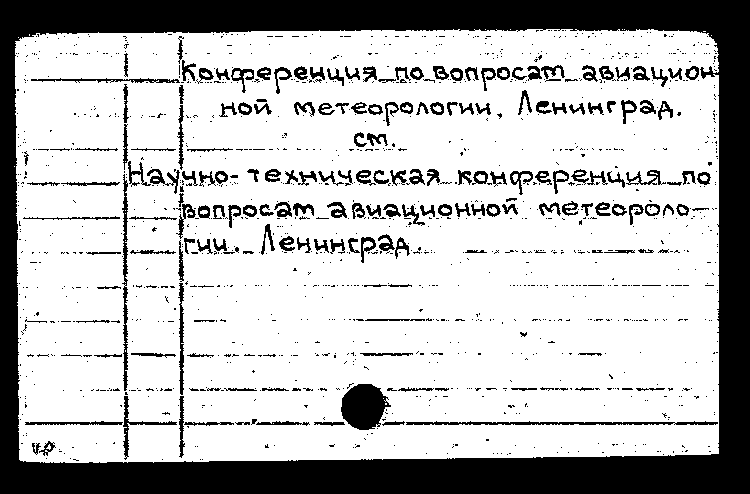 Конференция по вопросам авиацион-
ной метеорологии. Ленинград.
см.
Научно-техническая конференция по
вопросам авиационной метеороло-
гии. Ленинград.